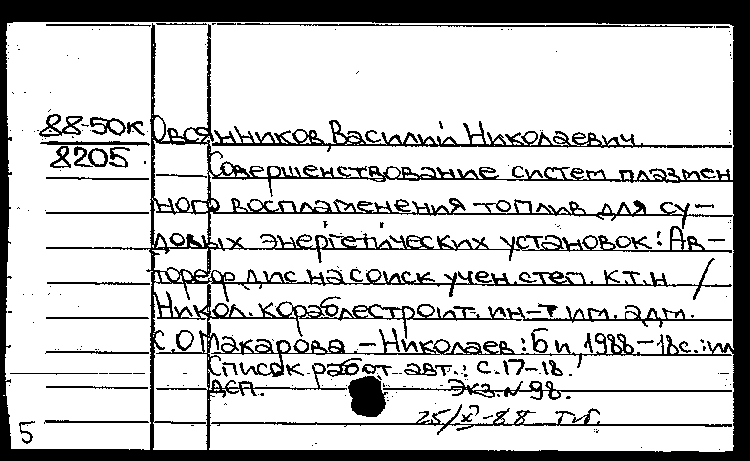 88-50к Овсянников, Василий Николаевич.
8205
Совершенствование систем плазмен
ного воспламенения топлив для су-
довых энергетических установок: Ав-
тореф дис на соиск учен. степ. к.т.н. /
Никол. кораблестроит. ин-т им. адм.
С.О Макарова. - Николаев: Б и, 1988. - 18с.: ил
Список работ авт.: с. 17-18.
ДСП. Экз. N 98.
25/XI-88
5